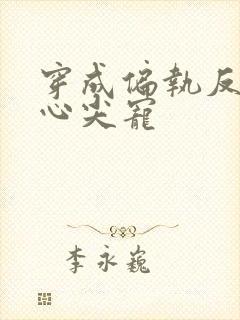 穿成偏執反
心尖寵
李永巍